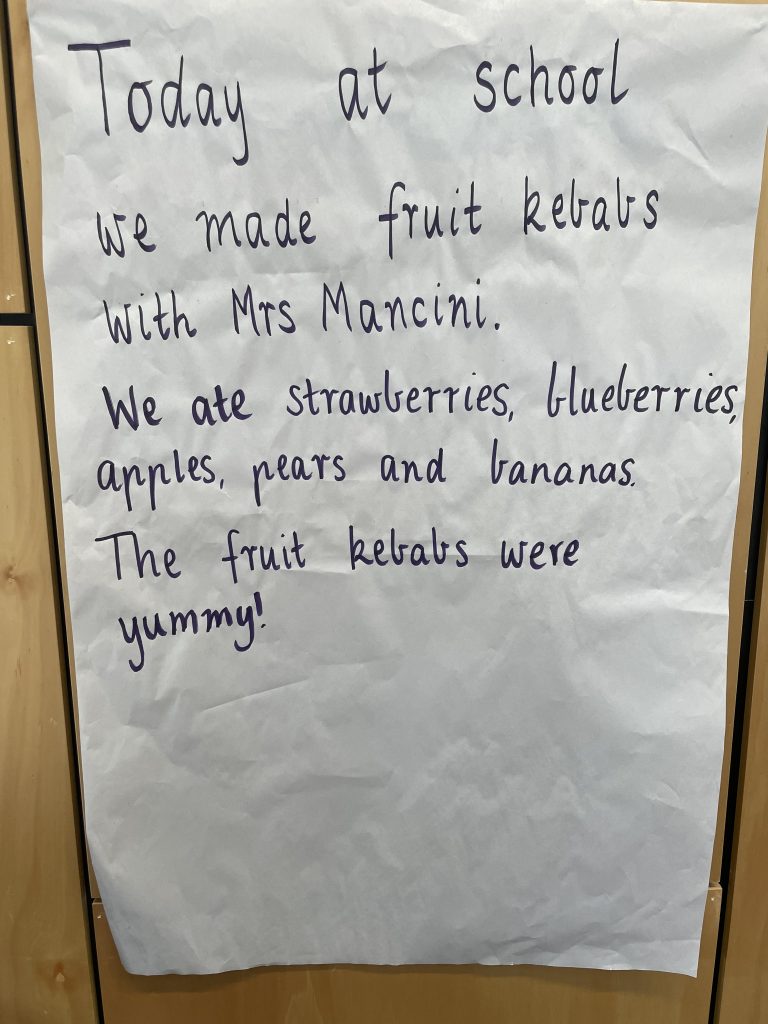 Today at school
we made fruit kebabs
with Mrs Mancini.
We ate strawberries, blueberries,
apples, pears and bananas.
The fruit kebabs were
yummy!